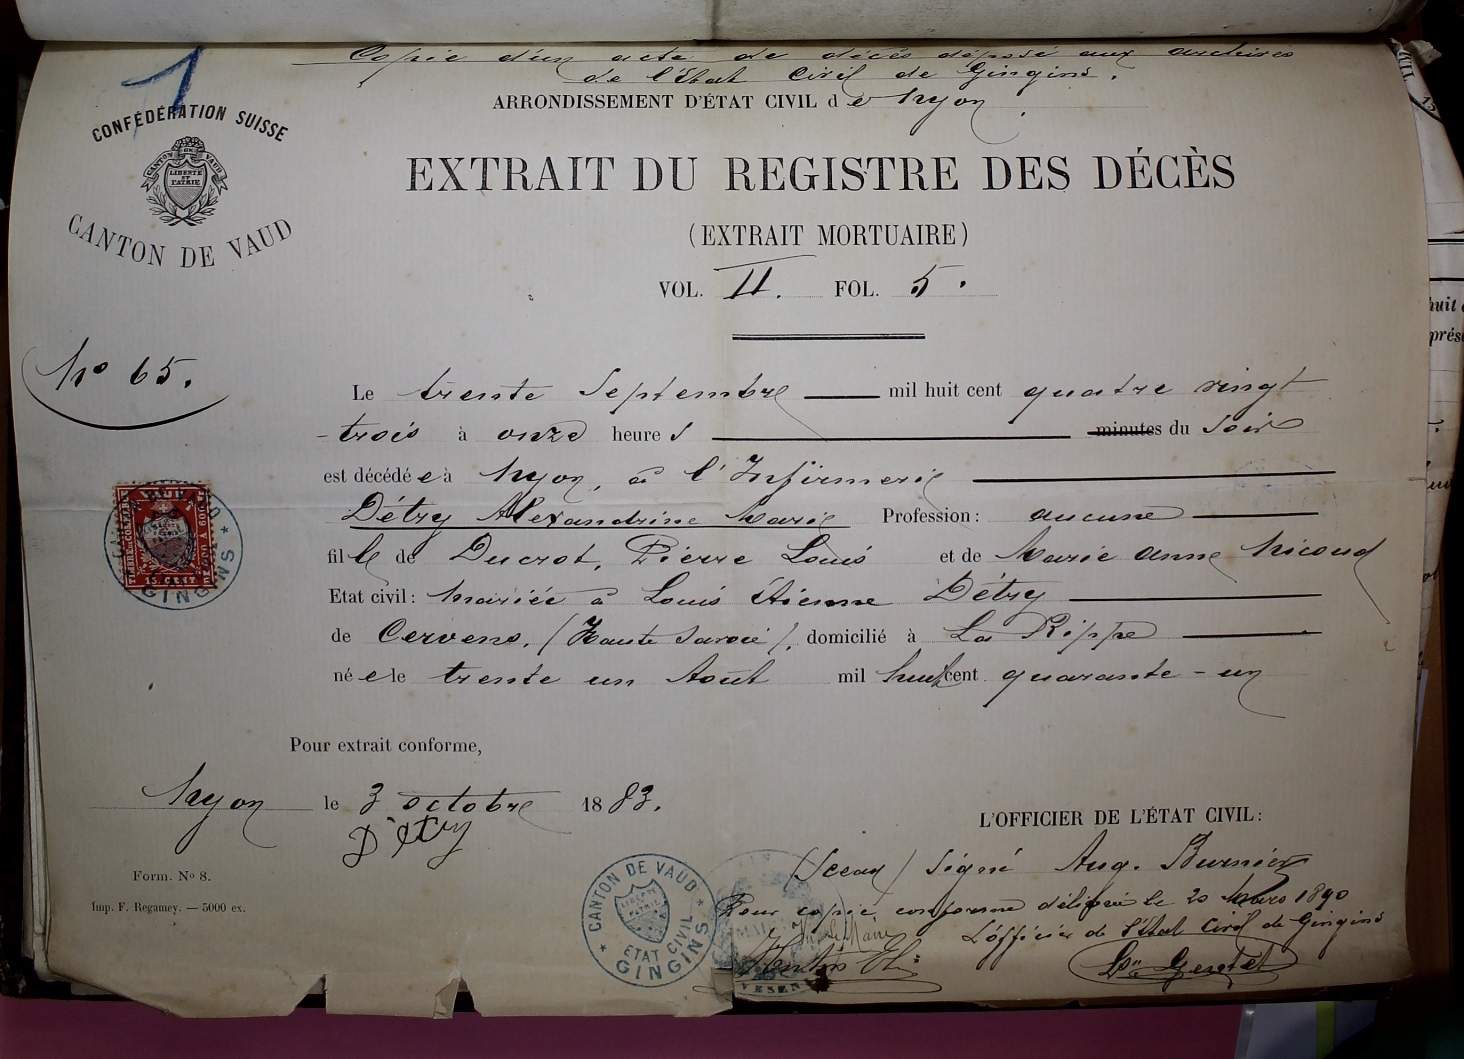 1
Copie d'un acte de décès déposé aux archives
de l'État Civil de Gingins.
ARRONDISSEMENT D'ÉTAT CIVIL de Nyon.
CONFÉDÉRATION SUISSE
CANTON DE VAUD
LIBERTÉ
ET
PATRIE
CANTON DE VAUD
EXTRAIT DU REGISTRE DES DÉCÈS
(EXTRAIT MORTUAIRE)
VOL. II. FOL. 5.
No 65.
Le trente Septembre mil huit cent quatre vingt
-trois à onze heures minutes du Soir
est décédée à Nyon, à l'Infirmerie
Détry Alexandrine Marie Profession: aucune
fille de Ducrot, Pierre Louis et de Marie Anne Nicoud
Etat civil: mariée à Louis Étienne Détry
de Cervens, (Haute Savoie), domicilié à La Rippe
née le trente un Août mil huit cent quarante-un
15 CENT
GINGINS
Pour extrait conforme,
Nyon le 3 octobre 1883.
Détry
L'OFFICIER DE L'ÉTAT CIVIL:
(Sceau) Signé Aug. Burnier
Form. No 8.
Imp. F. Regamey. — 5000 ex.
Pour copie conforme délivrée le 20 Mars 1890
L'officier de l'État Civil de Gingins
CANTON DE VAUD
LIBERTÉ
ET
PATRIE
ETAT CIVIL
GINGINS
huit